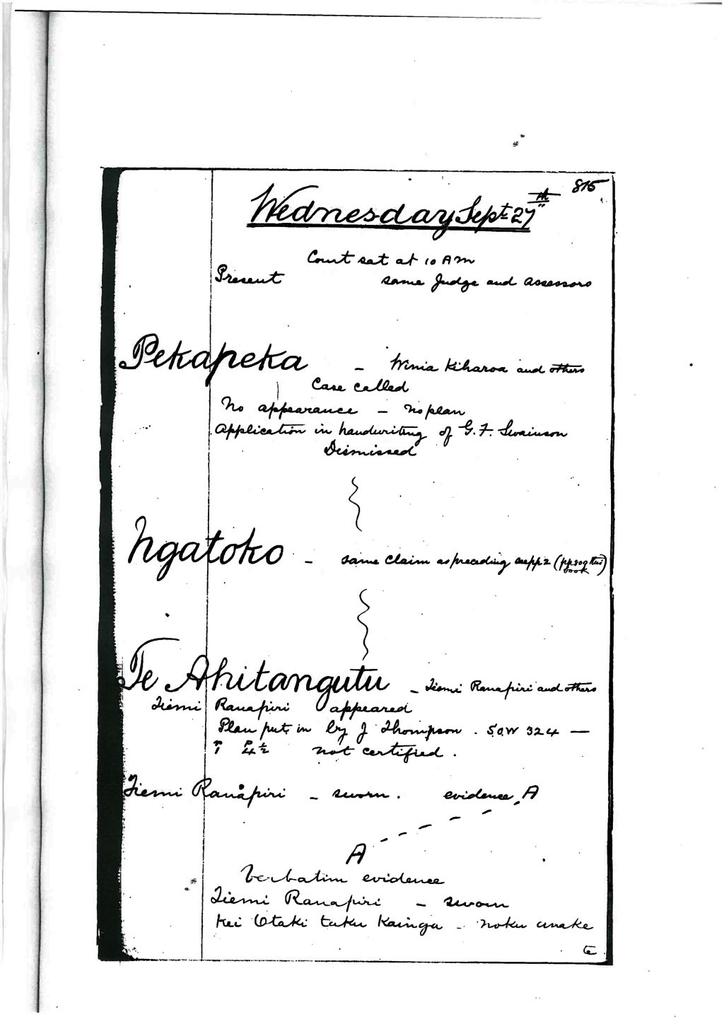 815
Wednesday Sept 27th
Court sat at 10 AM
Present same Judge and assessors
Pekapeka - Winia Kiharoa and others
Case called
No appearance - No plan
Application in handwriting of G. F. Swainson
Dismissed
Ngatoko - same claim as preceding
Te Ahitangutu - Tiemi Ranapiri and others
Tiemi Ranapiri appeared
Plan put in by J Thompson. 324 -
not certified.
Tiemi Ranapiri - sworn. evidence A
A
Verbatim evidence
Tiemi Ranapiri - sworn
Kei Otaki taku Kainga - Noku anake
te